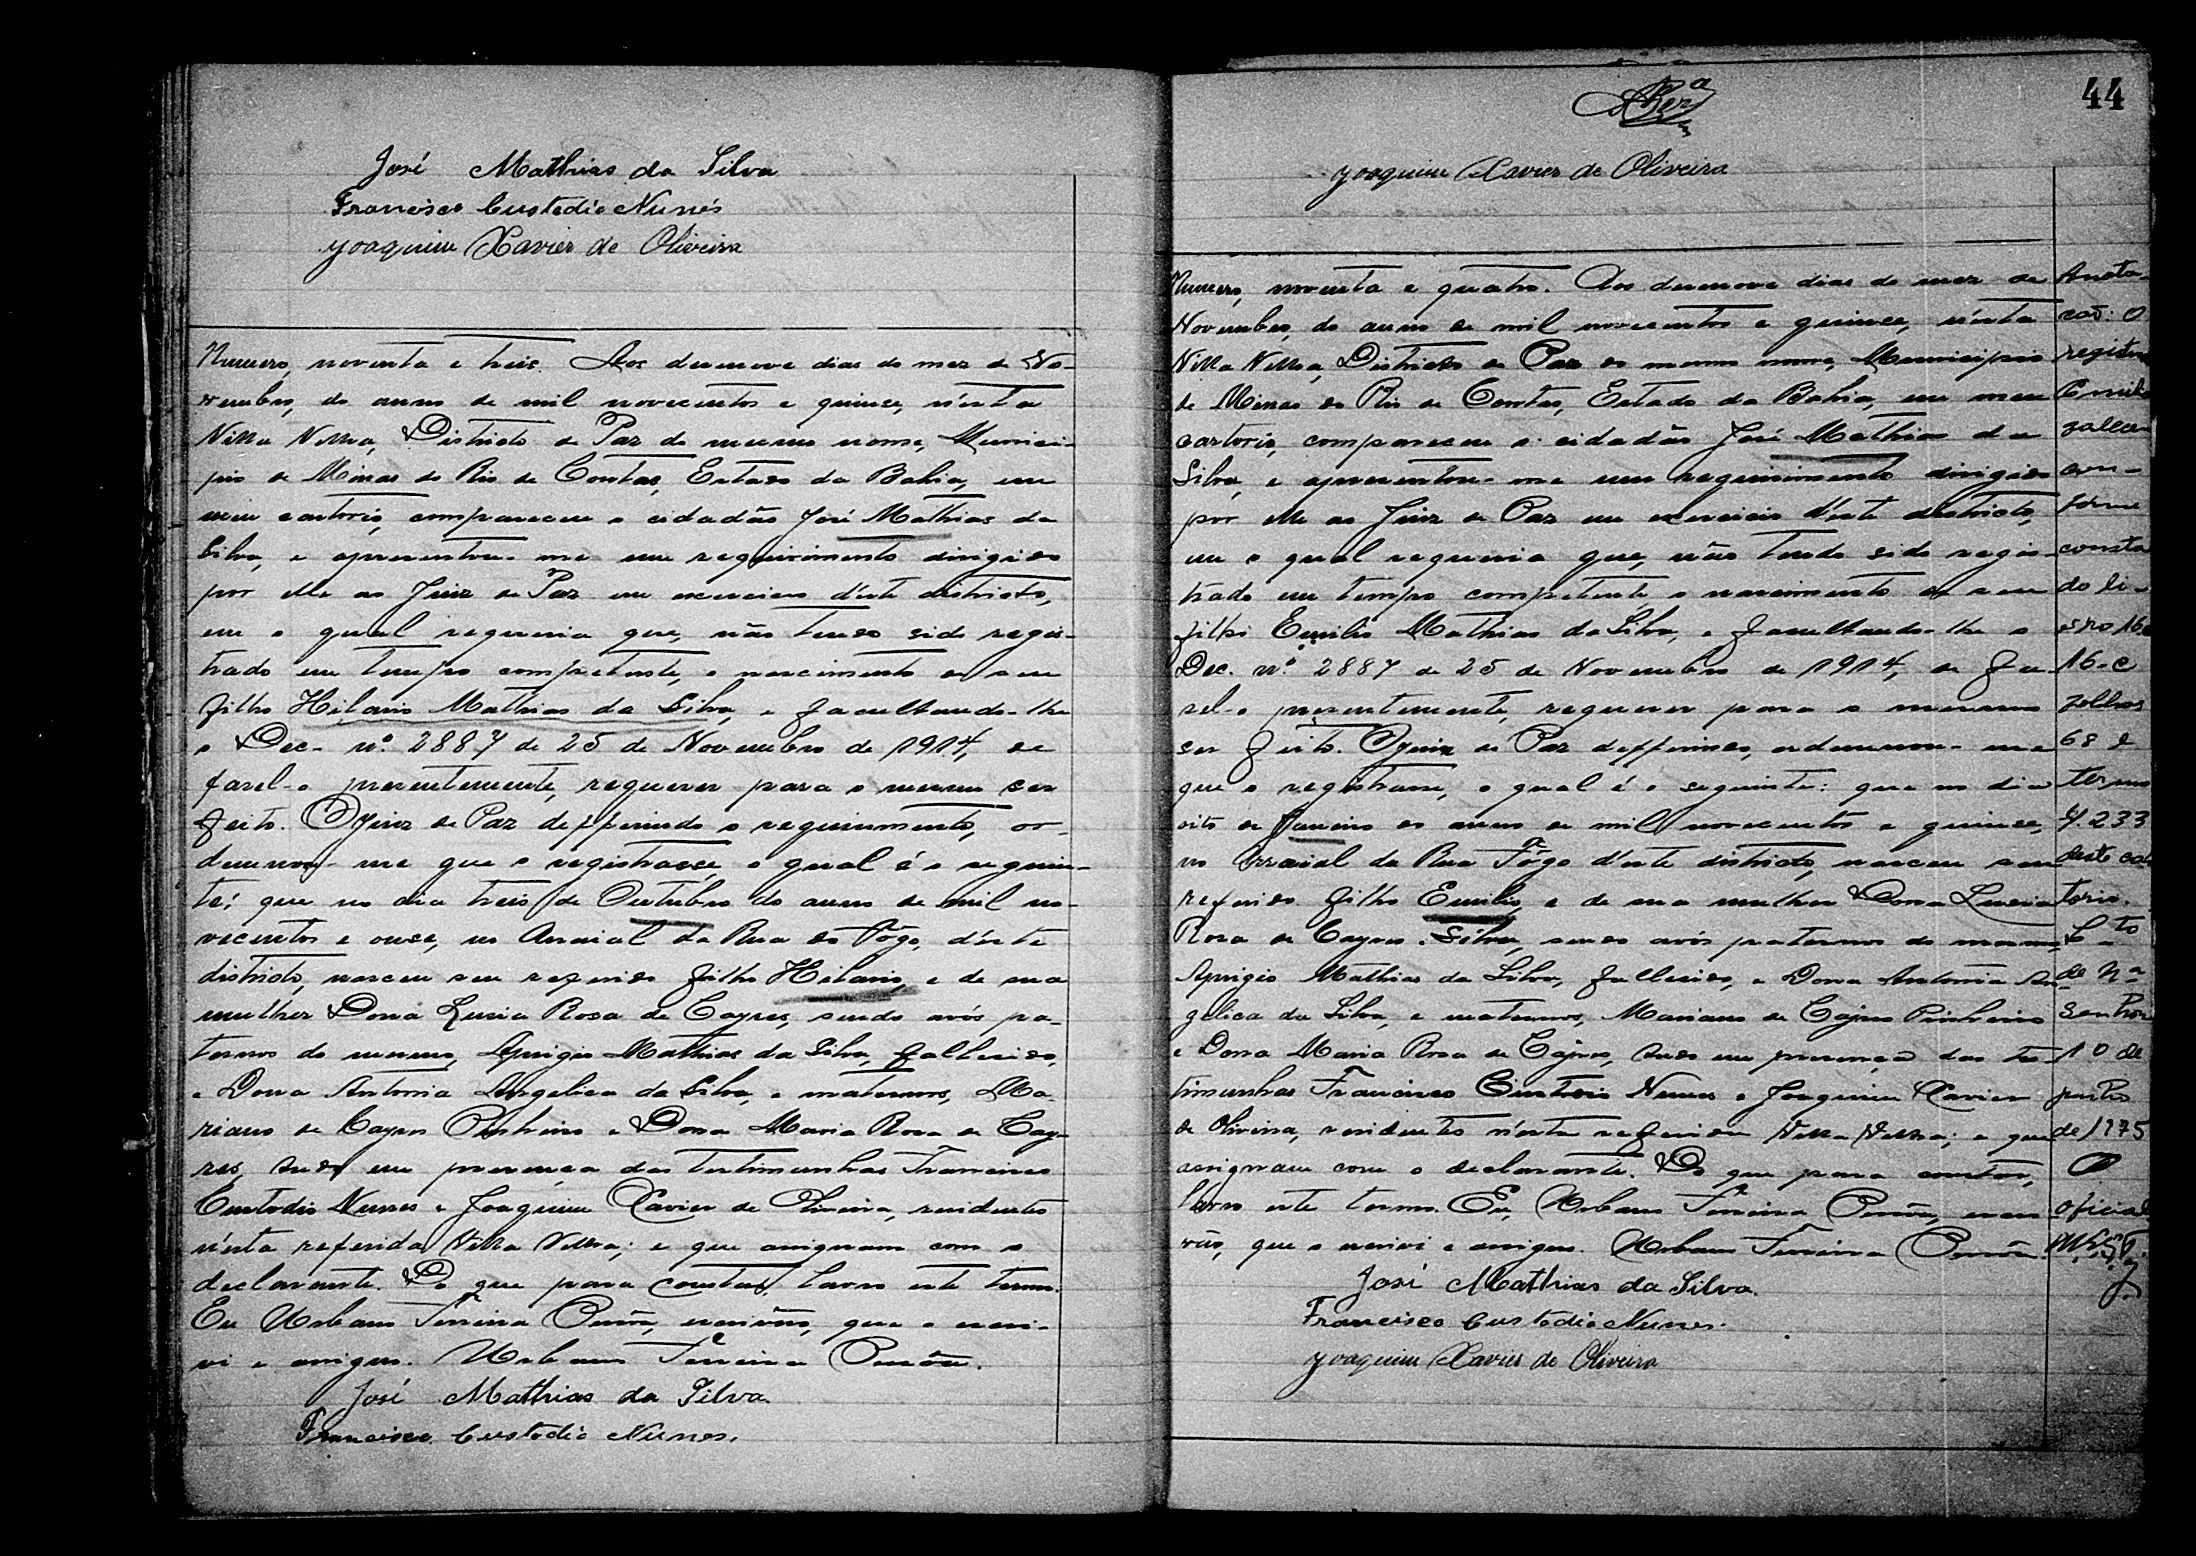 José Mathias da Silva
Francisco Custodio Nunes
Joaquim Xavier de Oliveira
Numero, noventa e treis. Aos desenove dias do mez de No-
vembro, do anno de mil novecentos e quinse, n'esta
Villa Velha, Districto de Paz do mesmo nome, Munici-
pio de Minas do Rio de Contas, Estado da Bahia, em
meu cartorio, compareceu o cidadão José Mathias da
Silva, e apresentou-me um requirimento dirigido
por elle ao Juiz de Paz em exercicio d'este districto,
em o qual requeria que, não tendo sido regis-
trado em tempo competente, o nascimento de seu
filho Hilario Mathias da Silva, e facultando-lhe
o Dec. nº 2887 de 25 de Novembro de 1914, de
fasel-o presentemente, requerer para o mesmo ser
feito. O Juiz de Paz defferindo o requirimento, or-
denou-me que o registrasse, o qual é o seguin-
te: que no dia treis de Outubro do anno de mil no-
vecentos e onse, no Arraial da Rua do Fôgo, d'este
districto, nasceu seu referido filho Hilario, e de sua
mulher Dona Lusia Rosa de Cayres, sendo avós pa-
ternos do mesmo, Aprigio Mathias da Silva, fallecido,
e Dona Antonia Angelica da Silva, e maternos, Ma-
riano de Cayres Pinheiro e Dona Maria Rosa de Cay-
res, tudo em presença das testimunhas Francisco
Custodio Nunes e Joaquim Xavier de Oliveira, residentes
n'esta referida Villa Velha; e que assignam com o
declarante. Do que para constar, lavro este termo.
Eu Urbano Ferreira, escrivão, que o escri-
vi e assigno. Urbano Ferreira
José Mathias da Silva.
Francisco Custodio Nunes.
44
Joaquim Xavier de Oliveira
Numero, noventa e quatro. Aos desenove dias do mez de
Novembro, do anno de mil novecentos e quinse, n'esta
Villa Velha, Districto de Paz do mesmo nome, Municipio
de Minas do Rio de Contas, Estado da Bahia, em meu
cartorio, compareceu o cidadão José Mathias da
Silva, e apresentou-me um requirimento dirigido
por elle ao Juiz de Paz em exercicio d'este districto,
em o qual requeria que, não tendo sido regis-
trado em tempo competente o nascimento de seu
filho Emilio Mathias da Silva, e facultando-lhe o
Dec. nº 2887 de 25 de Novembro de 1914, de fa-
sel-o presentemente, requerer para o mesmo
ser feito. O Juiz de Paz defferindo, ordenou-me
que o registrasse, o qual é o seguinte: que no dia
oito de Janeiro do anno de mil novecentos e quinse,
no Arraial da Rua Fôgo d'este districto, nasceu seu
referido filho Emilio, e de sua mulher Dona Lusia
Rosa de Cayres Silva, sendo avós paternos do mesmo,
Aprigio Mathias da Silva, fallecido, e Dona Antonia An-
gelica da Silva, e maternos, Mariano de Cajres Pinheiro
e Dona Maria Rosa de Cajres, tudo em presença das tes-
timunhas Francisco Custodio Nunes e Joaquim Xavier
de Oliveira, residentes n'esta referida Villa Velha; e que
assignam com o declarante. Do que para constar,
lavro este termo. Eu, Urbano Ferreira, escri-
vão, que o escrivi e assigno. Urbano Ferreira
José Mathias da Silva.
Francisco Custodio Nunes.
Joaquim Xavier de Oliveira
Anota-
ção: O
registro
Emilio
con-
forme
consta
do li-
vro 16
16-C
folhas
68 e
termo
4.233
deste car-
torio.
de Nª
Senhora
10 de
junho
de 1975
O
oficial